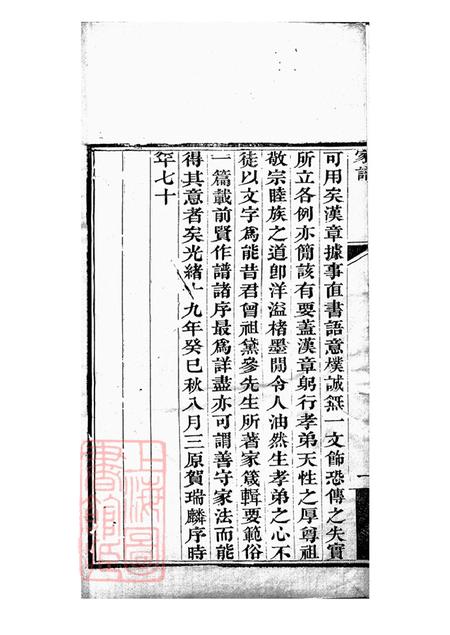 家譜
可用矣漢章據事直書語意樸誠無一文飾恐傳之失實
所立各例亦簡該有要蓋漢章躬行孝弟天性之厚尊祖
敬宗睦族之道卽洋溢楮墨閒令人油然生孝弟之心不
徒以文字爲能昔君曾祖黛參先生所著家箴輯要範俗
一篇載前賢作譜諸序最爲詳盡亦可謂善守家法而能
得其意者矣光緒十九年癸巳秋八月三原賀瑞麟序時
年七十
上海圖書館藏